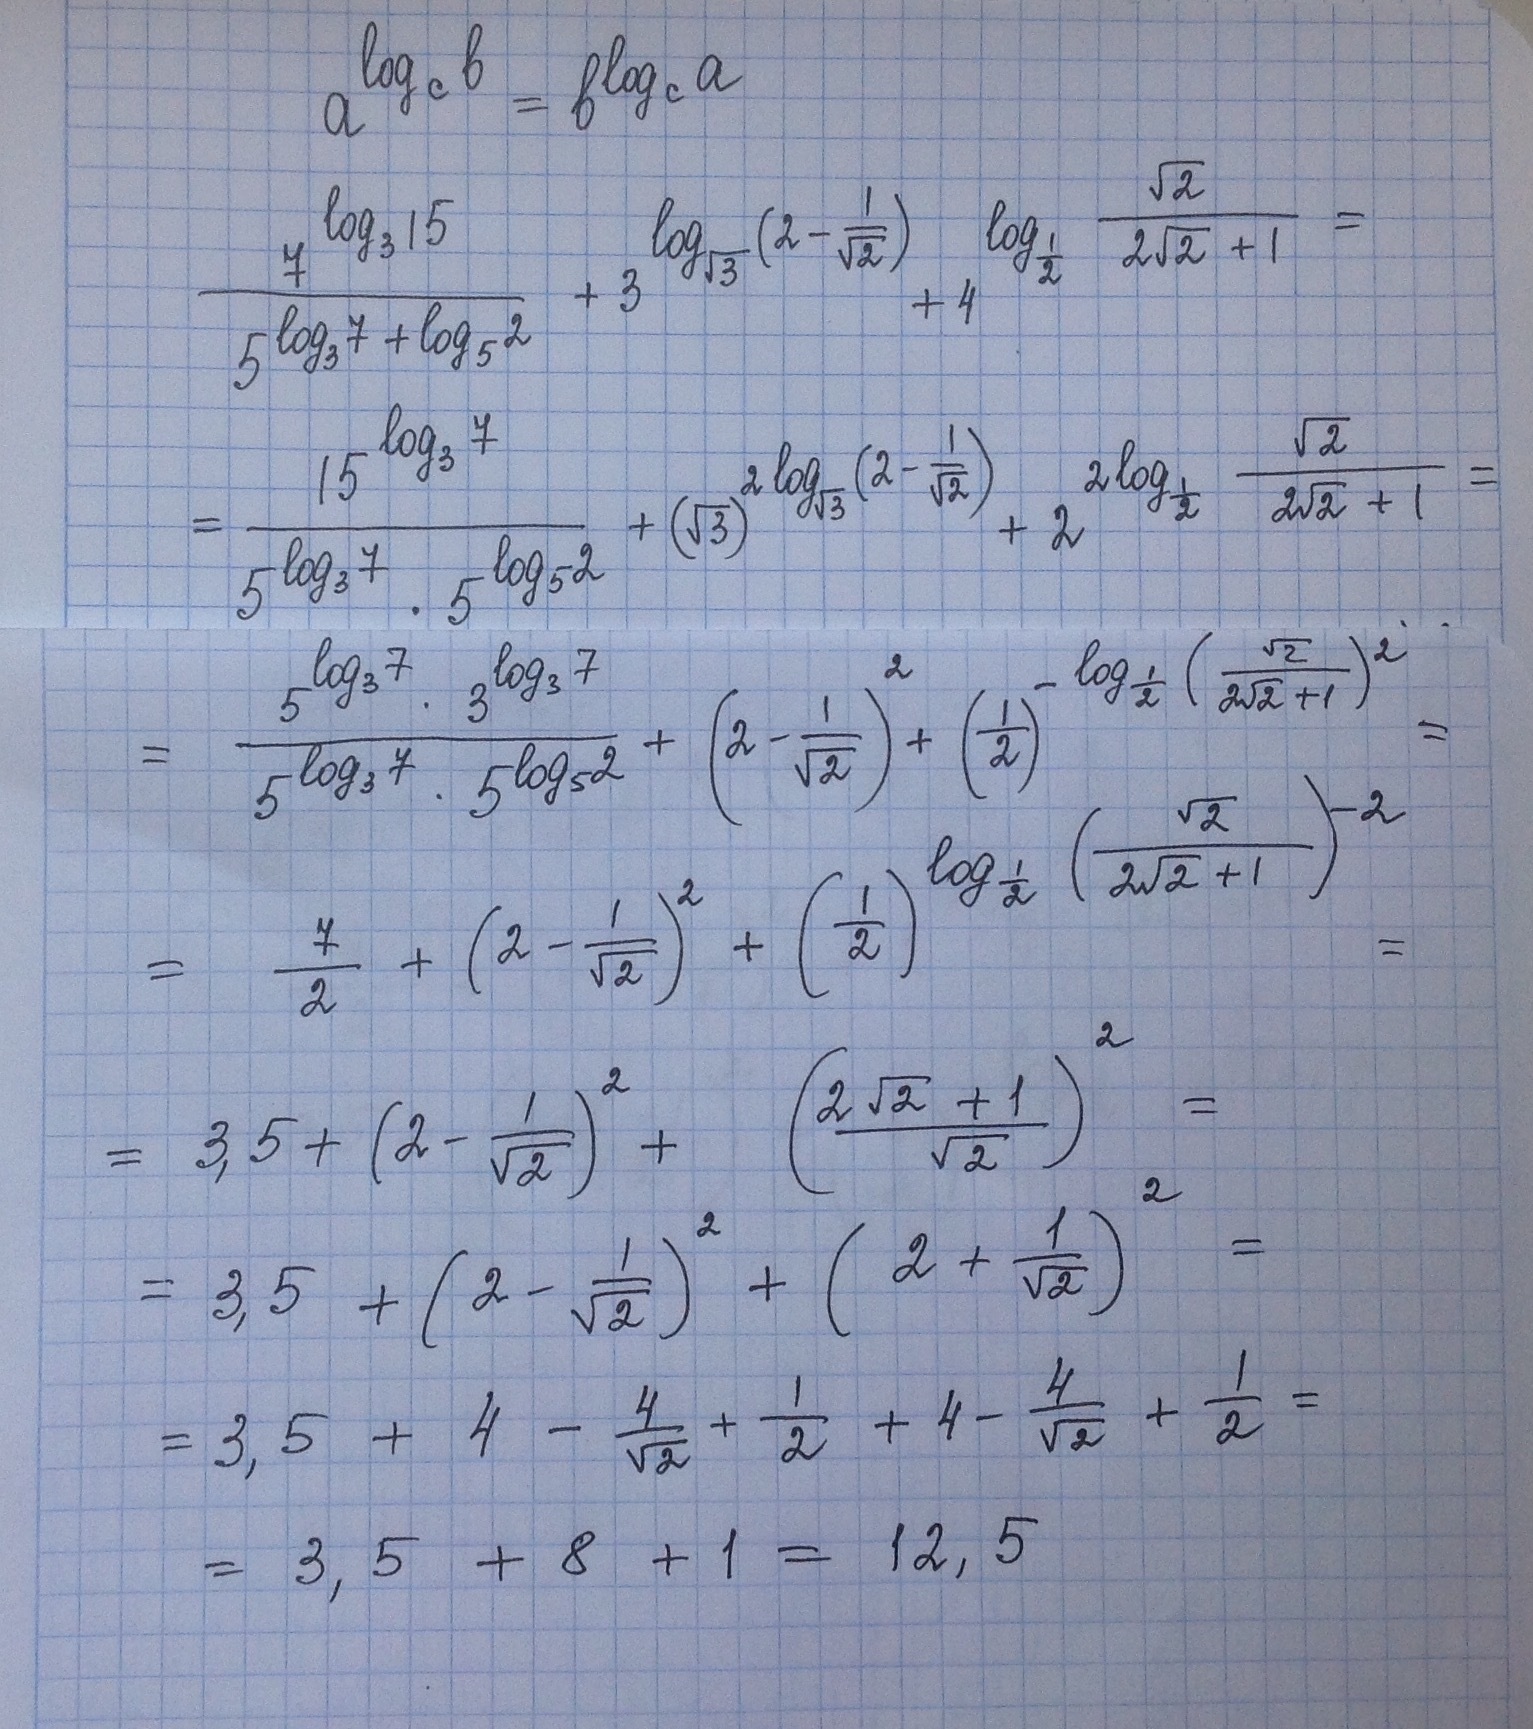 a^{log_c b} = b^{log_c a}
\frac{7^{log_3 15}}{5^{log_3 7 + log_5 2}} + 3^{log_{\sqrt{3}} (2 - \frac{1}{\sqrt{2}})} + 4^{log_{\frac{1}{2}} \frac{\sqrt{2}}{2\sqrt{2} + 1}} =
= \frac{15^{log_3 7}}{5^{log_3 7} · 5^{log_5 2}} + (\sqrt{3})^{2 log_{\sqrt{3}} (2 - \frac{1}{\sqrt{2}})} + 2^{2 log_{\frac{1}{2}} \frac{\sqrt{2}}{2\sqrt{2} + 1}} =
= \frac{5^{log_3 7} · 3^{log_3 7}}{5^{log_3 7} · 5^{log_5 2}} + (2 - \frac{1}{\sqrt{2}})^2 + (\frac{1}{2})^{- log_{\frac{1}{2}} (\frac{\sqrt{2}}{2\sqrt{2} + 1})^2} =
= \frac{7}{2} + (2 - \frac{1}{\sqrt{2}})^2 + (\frac{1}{2})^{log_{\frac{1}{2}} (\frac{\sqrt{2}}{2\sqrt{2} + 1})^{-2}} =
= 3,5 + (2 - \frac{1}{\sqrt{2}})^2 + (\frac{2\sqrt{2} + 1}{\sqrt{2}})^2 =
= 3,5 + (2 - \frac{1}{\sqrt{2}})^2 + (2 + \frac{1}{\sqrt{2}})^2 =
= 3,5 + 4 - \frac{4}{\sqrt{2}} + \frac{1}{2} + 4 - \frac{4}{\sqrt{2}} + \frac{1}{2} =
= 3,5 + 8 + 1 = 12,5